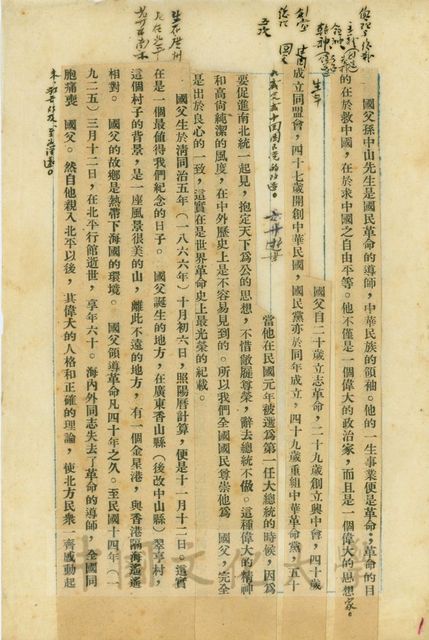 國父孫中山先生是國民革命的導師，中華民族的領袖。他的一生事業便是革命，革命的目
的在於救中國，在於求中國之自由平等。他不僅是一個偉大的政治家，而且是一個偉大的思想家。
國父自二十歲立志革命，二十九歲創立興中會，四十歲
成立同盟會，四十七歲開創中華民國，國民黨亦於同年成立，四十九歲重組中華革命黨，五十
當他在民國元年被選為第一任大總統的時候，因為
要促進南北統一起見，抱定天下為公的思想，不惜敝屣尊榮，辭去總統不做。這種偉大的精神
和高尚純潔的風度，在中外歷史上是不容易見到的。所以我們全國國民尊崇他為　國父，完全
是出於良心的一致，這實在是世界革命史上最光榮的紀載。
國父生於清同治五年（一八六六年）十月初六日，照陽曆計算，便是十一月十二日。這實
在是一個最值得我們紀念的日子。　國父誕生的地方，在廣東香山縣（後改中山縣）翠亨村，
這個村子的背景，是一座風景很美的山，離此不遠的地方，有一個金星港，與香港隔海遙遙
相對。　國父的故鄉是熱帶下海國的環境。　國父領導革命凡四十年之久。至民國十四年（一
九二五）三月十二日，在北平行館逝世，享年六十。海內外同志失去了革命的導師，全國同
胞痛喪　國父。然自他親入北平以後，其偉大的人格和正確的理論，使北方民衆一齊感動起
中國文化大學